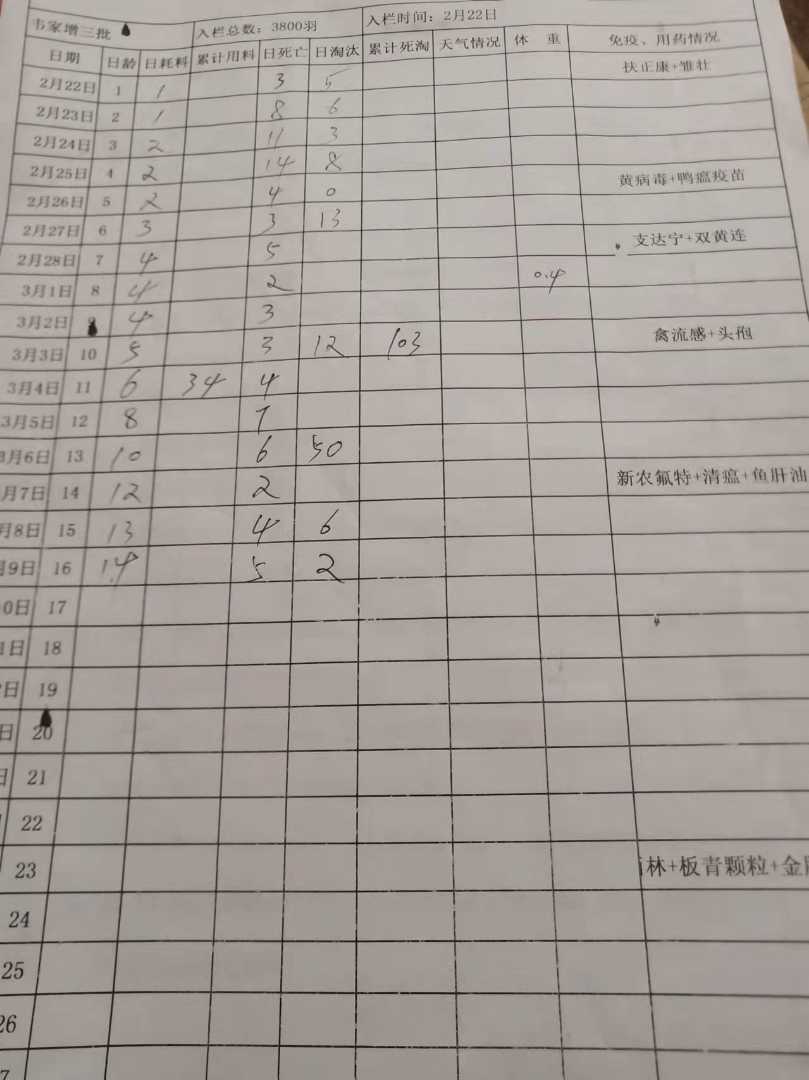 韦家增三批 入栏总数：3800羽 入栏时间：2月22日
日期 日龄 日耗料 累计用料 日死亡 日淘汰 累计死淘 天气情况 体 重 免疫、用药情况
2月22日 1 1 3 5 扶正康+雏壮
2月23日 2 1 8 6
2月24日 3 2 11 3
2月25日 4 2 14 8 黄病毒+鸭瘟疫苗
2月26日 5 2 4 0
2月27日 6 3 3 13 支达宁+双黄连
2月28日 7 4 5
3月1日 8 4 2 0.4
3月2日 9 4 3
3月3日 10 5 3 12 103 禽流感+头孢
3月4日 11 6 34 4
3月5日 12 8 7
3月6日 13 10 6 50
月7日 14 12 2 新农氟特+清瘟+鱼肝油
月8日 15 13 4 6
月9日 16 14 5 2
0日 17
1日 18
日 19
日 20
日 21
22
23 林+板青颗粒+金
24
25
26
7